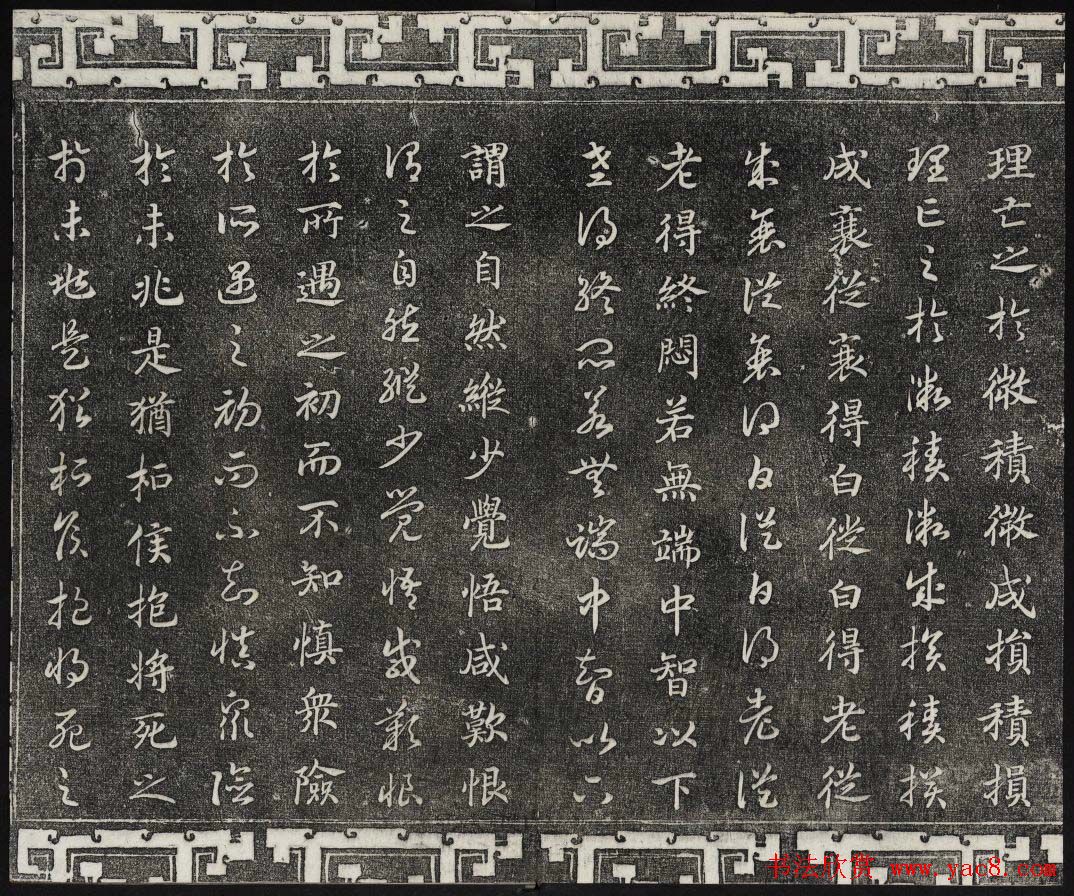 理亡之於微積微成損積損
理亡之於微積微成損積損
成衰從衰得白從白得老從
成衰從衰得白從白得老從
老得終悶若無端中智以下
老得終悶若無端中智以下
謂之自然縱少覺悟咸歎恨
謂之自然縱少覺悟咸歎恨
於所遇之初而不知慎衆險
於所遇之初而不知慎衆險
於未兆是猶桓侯抱將死之
於未兆是猶桓侯抱將死之
书法欣赏 www.yac8.com